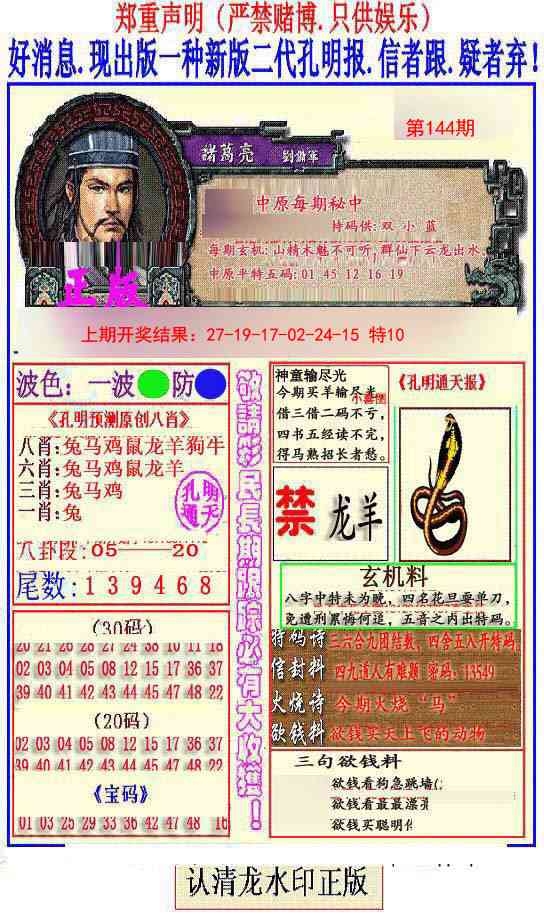 郑重声明（严禁赌博.只供娱乐）
好消息.现出版一种新版二代孔明报.信者跟.疑者弃！
第144期
諸葛亮
中原每期秘中
持码供:双 小 蓝
每期玄机:山精木魅不可听,群仙下云龙出水
中原平特五码:01 45 12 16 19
正版
上期开奖结果：27-19-17-02-24-15 特10
波色：一波 防
《孔明预测原创八肖》
八肖:兔马鸡鼠龙羊狗牛
六肖:兔马鸡鼠龙羊
三肖:兔马鸡
一肖:兔
孔明
通天
八卦段:05——20
尾数:139468
(30码)
20 21 26 28 27 24 38 10 11 18
02 03 04 05 08 12 15 17 36 37
39 40 41 42 43 44 45 47 48 22
(20码)
02 03 04 05 08 12 15 17 36 37
39 40 41 42 43 44 45 47 48 22
《宝码》
01 03 25 29 33 36 42 47 48 16
敬請彩民長期跟踪必有大收獲！
神童输尽光
今期买羊输尽光
借三借二码不亏,
四书五经读不完,
得马熟招长者愁。
《孔明通天报》
禁 龙羊
玄机料
八字中特未为晚，四名花旦耍单刀,
免遭刑累悔何迟，五音之内出特码。
特码诗 三六合九团结数，四舍五入开特码
信封料 四九道人有难题 密码：13549
火烧诗 今期火烧“马”
欲钱料 欲钱买天上飞的动物
三句欲钱料
欲钱看狗急跳墙
欲钱看最最潇
欲钱买聪明
认清龙水印正版